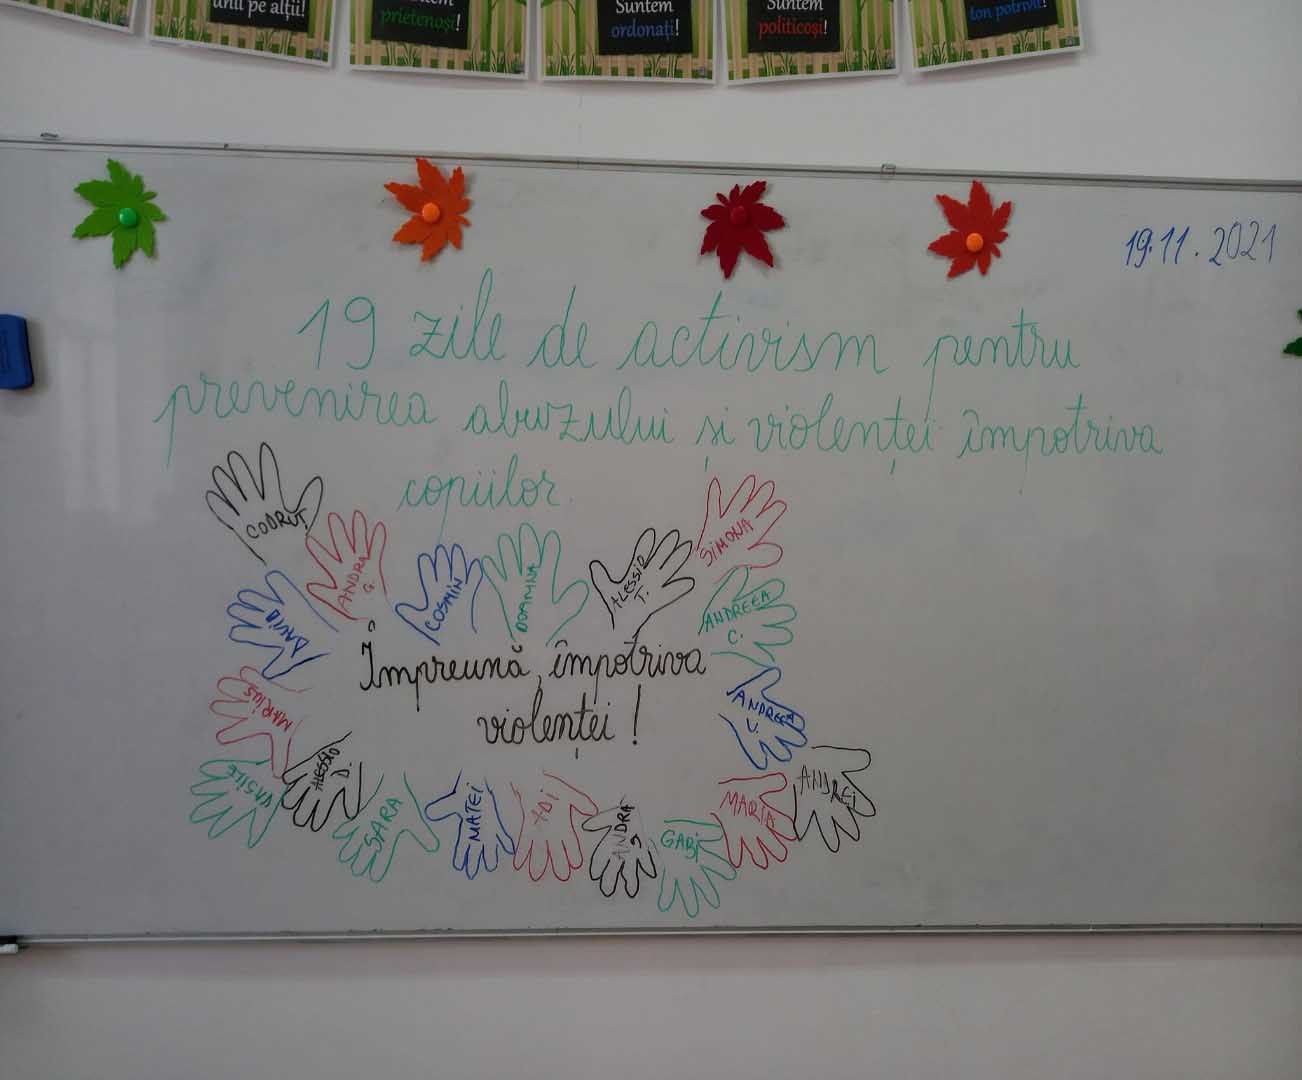 unii pe alții!
prietenoși!
Suntem
ordonați!
Suntem
politicoși!
ton potrivit!
19.11.2021
19 zile de activism pentru
prevenirea abuzului și violenței împotriva
copiilor.
CODRUȚ
ANDRA
G.
COSMIN
DOAMNA
ALESSIO
T.
SIMONA
DAVID
ANDREEA
C.
Împreună, împotriva
violenței!
MARIUS
ANDREEA
V.
VASILE
ALESSIO
D.
SARA
MATEI
ADI
ANDRA
GABI
MARIA
ANDREI